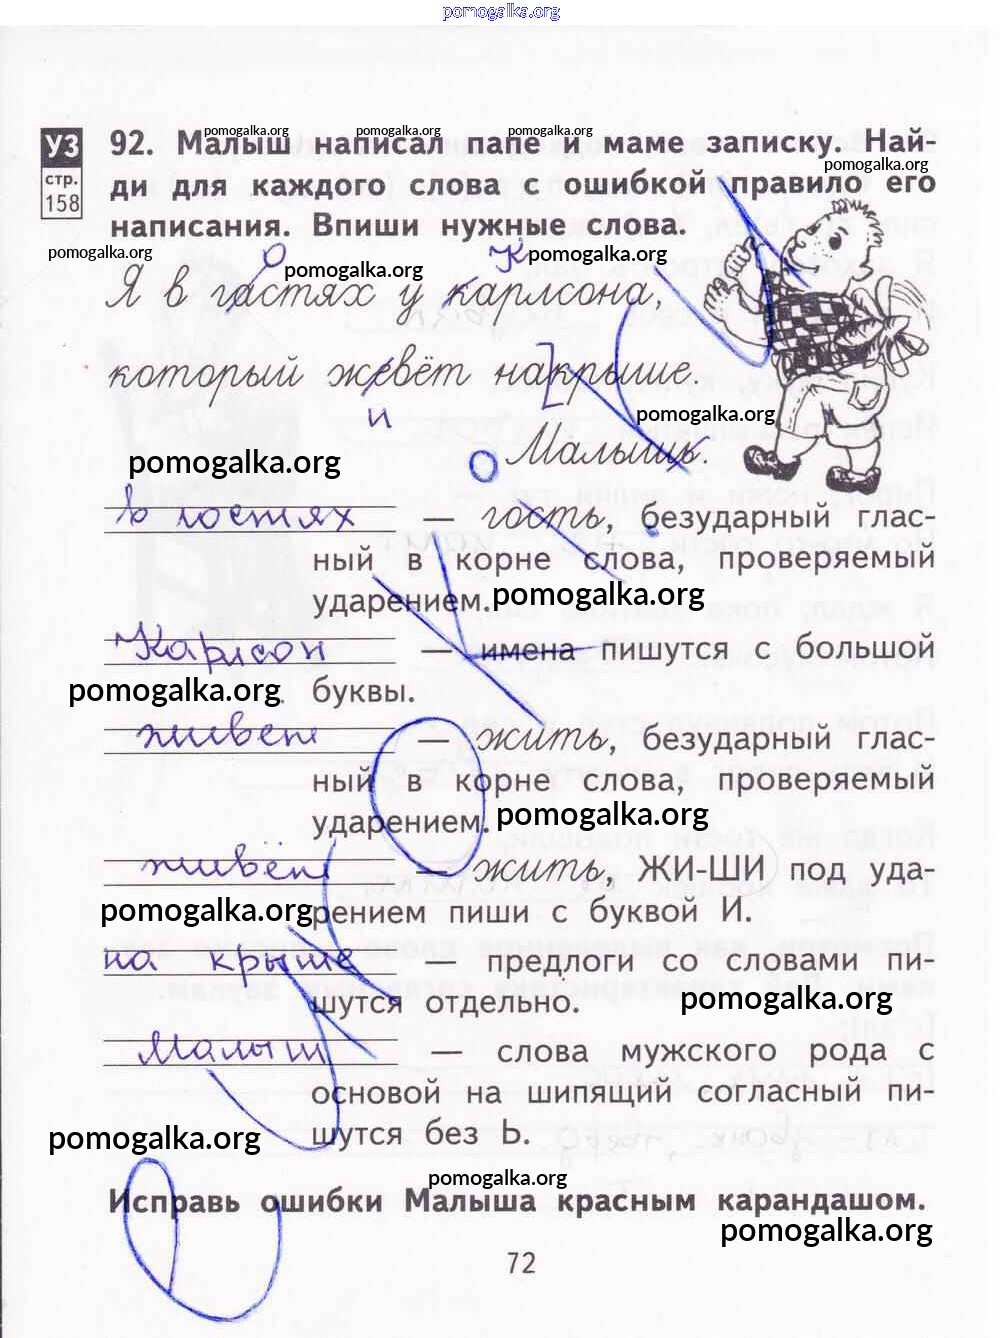 pomogalka.org
УЗ
стр.
158
92. Малыш написал папе и маме записку. Най-
ди для каждого слова с ошибкой правило его
написания. Впиши нужные слова.
pomogalka.org pomogalka.org pomogalka.org
pomogalka.org
pomogalka.org
о К
pomogalka.org pomogalka.org
Я в гастях у карлсона,
который жевёт накрыше.
и
pomogalka.org
Малышь.
pomogalka.org
в гостях — гость, безударный глас-
ный в корне слова, проверяемый
ударением.
pomogalka.org
Карлсон — имена пишутся с большой
буквы.
pomogalka.org
живёт — жить, безударный глас-
ный в корне слова, проверяемый
ударением.
pomogalka.org
живёт — жить, ЖИ-ШИ под уда-
рением пиши с буквой И.
pomogalka.org
на крыше — предлоги со словами пи-
шутся отдельно.
pomogalka.org
Малыш — слова мужского рода с
основой на шипящий согласный пи-
шутся без Ь.
pomogalka.org
pomogalka.org
Исправь ошибки Малыша красным карандашом.
pomogalka.org
72